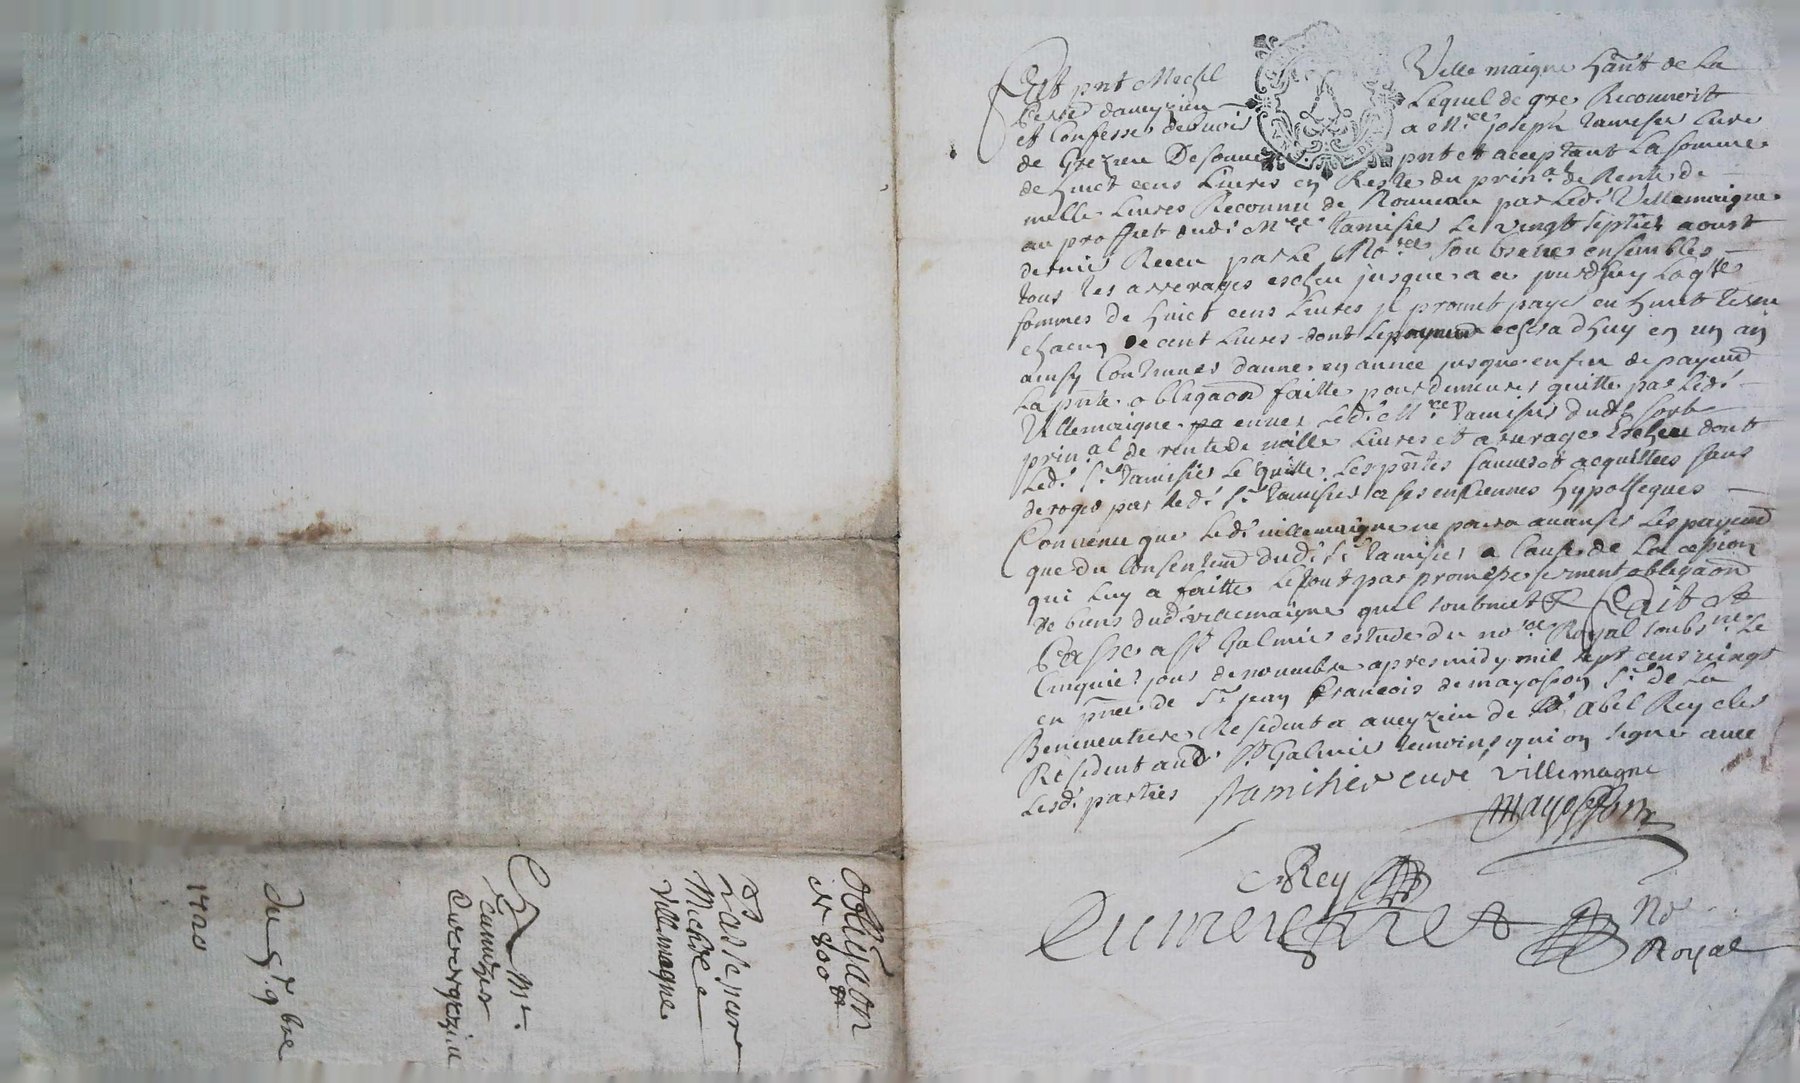 Est pnt Michel Villemaigne hant de la
de gre Reconnoit
et Confesse debvoir a Mre joseph tamisier Cure
de Grezieu pnt et aceptant La somme
de huict cens Livres en Reste du prinal de Rente de
mille Livres Reconnu de nouveau par Led. Villemaigne
au proffict dud. Mre tamisier Le vingt septier aoust
dernier Receu par Le No.re soubsne ensembles
tous les arrerages escheu jusque a ce jourdhuy Laqtte
sommes de huict cens Livres jl promet payer en huict
chacun de cent Livres dont Le a dhuy en un an
ainsy Continuer danne en annee jusque en fin de payemt
La pnte obligaon faitte pour demeurer quitte par Led.
Villemaigne envers Led. Mre Tamisier
prinal de rente de mille Livres et arrerages Escheu dont
Led. Sr. Tamisier Le quitte Les pntes sauves et acquittees sans
deroger par Led. Sr. Tamisier a ses enciennes hypotheques
Convenu que Led. villemaigne ne poura avanser Les payemt
que du Consentemt dud. Sr. Tamisier a Cause de La
qui Luy a faitte Le tout par promesse serment obligaon
de biens dud. villemaigne quil soubmet & Fait et
Passe a St Galmier estude du nore Royal soubsne Le
Cinquie. jour de novembre apres midy mil sept cens vingt
en pnce de Sr. jean francois de mayosson Sr. de La
Beneventiere Resident a aveyzieu de Abel Rey cler
Resident aud. St Galmier temoins qui on signe avec
Lesd. parties tamisier cure villemagne
mayosson
Rey
No
Royal
obligaon
de 800 tt
Michel
Villemagne
Mr.
tamizier
Cure
du 5 9bre
1720